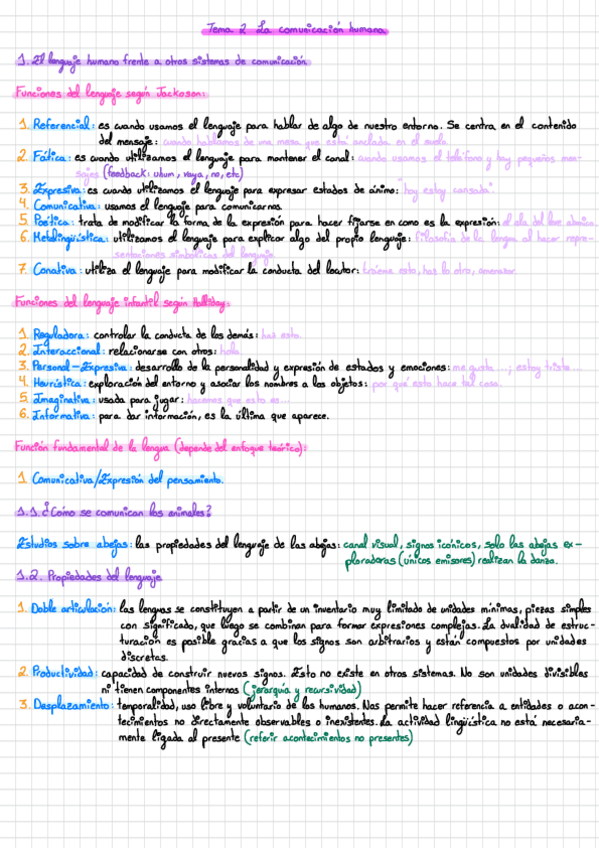 Tema 2 La comunicación humana
1. El lenguaje humano frente a otros sistemas de comunicación
Funciones del lenguaje según Jackoson:
1. Referencial: es cuando usamos el lenguaje para hablar de algo de nuestro entorno. Se centra en el contenido
del mensaje: cuando hablamos de una mesa que está anclada en el suelo.
2. Fática: es cuando utilizamos el lenguaje para mantener el canal: cuando usamos el teléfono y hay pequeños men-
sajes (feedback: uhum, vaya, no, etc)
3. Expresiva: es cuando utilizamos el lenguaje para expresar estados de ánimo: "hoy estoy cansada".
4. Comunicativa: usamos el lenguaje para comunicarnos.
5. Poética: trata de modificar la forma de la expresión para hacer fijarse en como es la expresión: el ala del
6. Metalingüística: utilizamos el lenguaje para explicar algo del propio lenguaje: filosofía de la lengua al hacer repre-
sentaciones simbólicas del lenguaje.
7. Conativa: utiliza el lenguaje para modificar la conducta del locutor: tráeme esto, haz lo otro, amenazar.
Funciones del lenguaje infantil según Halliday:
1. Reguladora: controlar la conducta de los demás: haz esto.
2. Interaccional: relacionarse con otros: hola
3. Personal-Expresiva: desarrollo de la personalidad y expresión de estados y emociones: me gusta ...; estoy triste...
4. Heurística: exploración del entorno y asociar los nombres a los objetos: por qué esto hace tal cosa.
5. Imaginativa: usada para jugar: hacemos que esto es...
6. Informativa: para dar información, es la última que aparece.
Función fundamental de la lengua (depende del enfoque teórico):
1. Comunicativa/Expresión del pensamiento.
1.1. ¿Cómo se comunican los animales?
Estudios sobre abejas: las propiedades del lenguaje de las abejas: canal visual, signos icónicos, solo las abejas ex-
ploradoras (únicos emisores) realizan la danza.
1.2. Propiedades del lenguaje
1. Doble articulación: las lenguas se constituyen a partir de un inventario muy limitado de unidades mínimas, piezas simples
con significado, que luego se combinan para formar expresiones complejas. La dualidad de estruc-
turación es posible gracias a que los signos son arbitrarios y están compuestos por unidades
discretas.
2. Productividad: capacidad de construir nuevos signos. Esto no existe en otros sistemas. No son unidades divisibles
ni tienen componentes internos (jerarquía y recursividad)
3. Desplazamiento: temporalidad, uso libre y voluntario de los humanos. Nos permite hacer referencia a entidades o acon-
tecimientos no directamente observables o inexistentes. La actividad lingüística no está necesaria-
mente ligada al presente (referir acontecimientos no presentes)